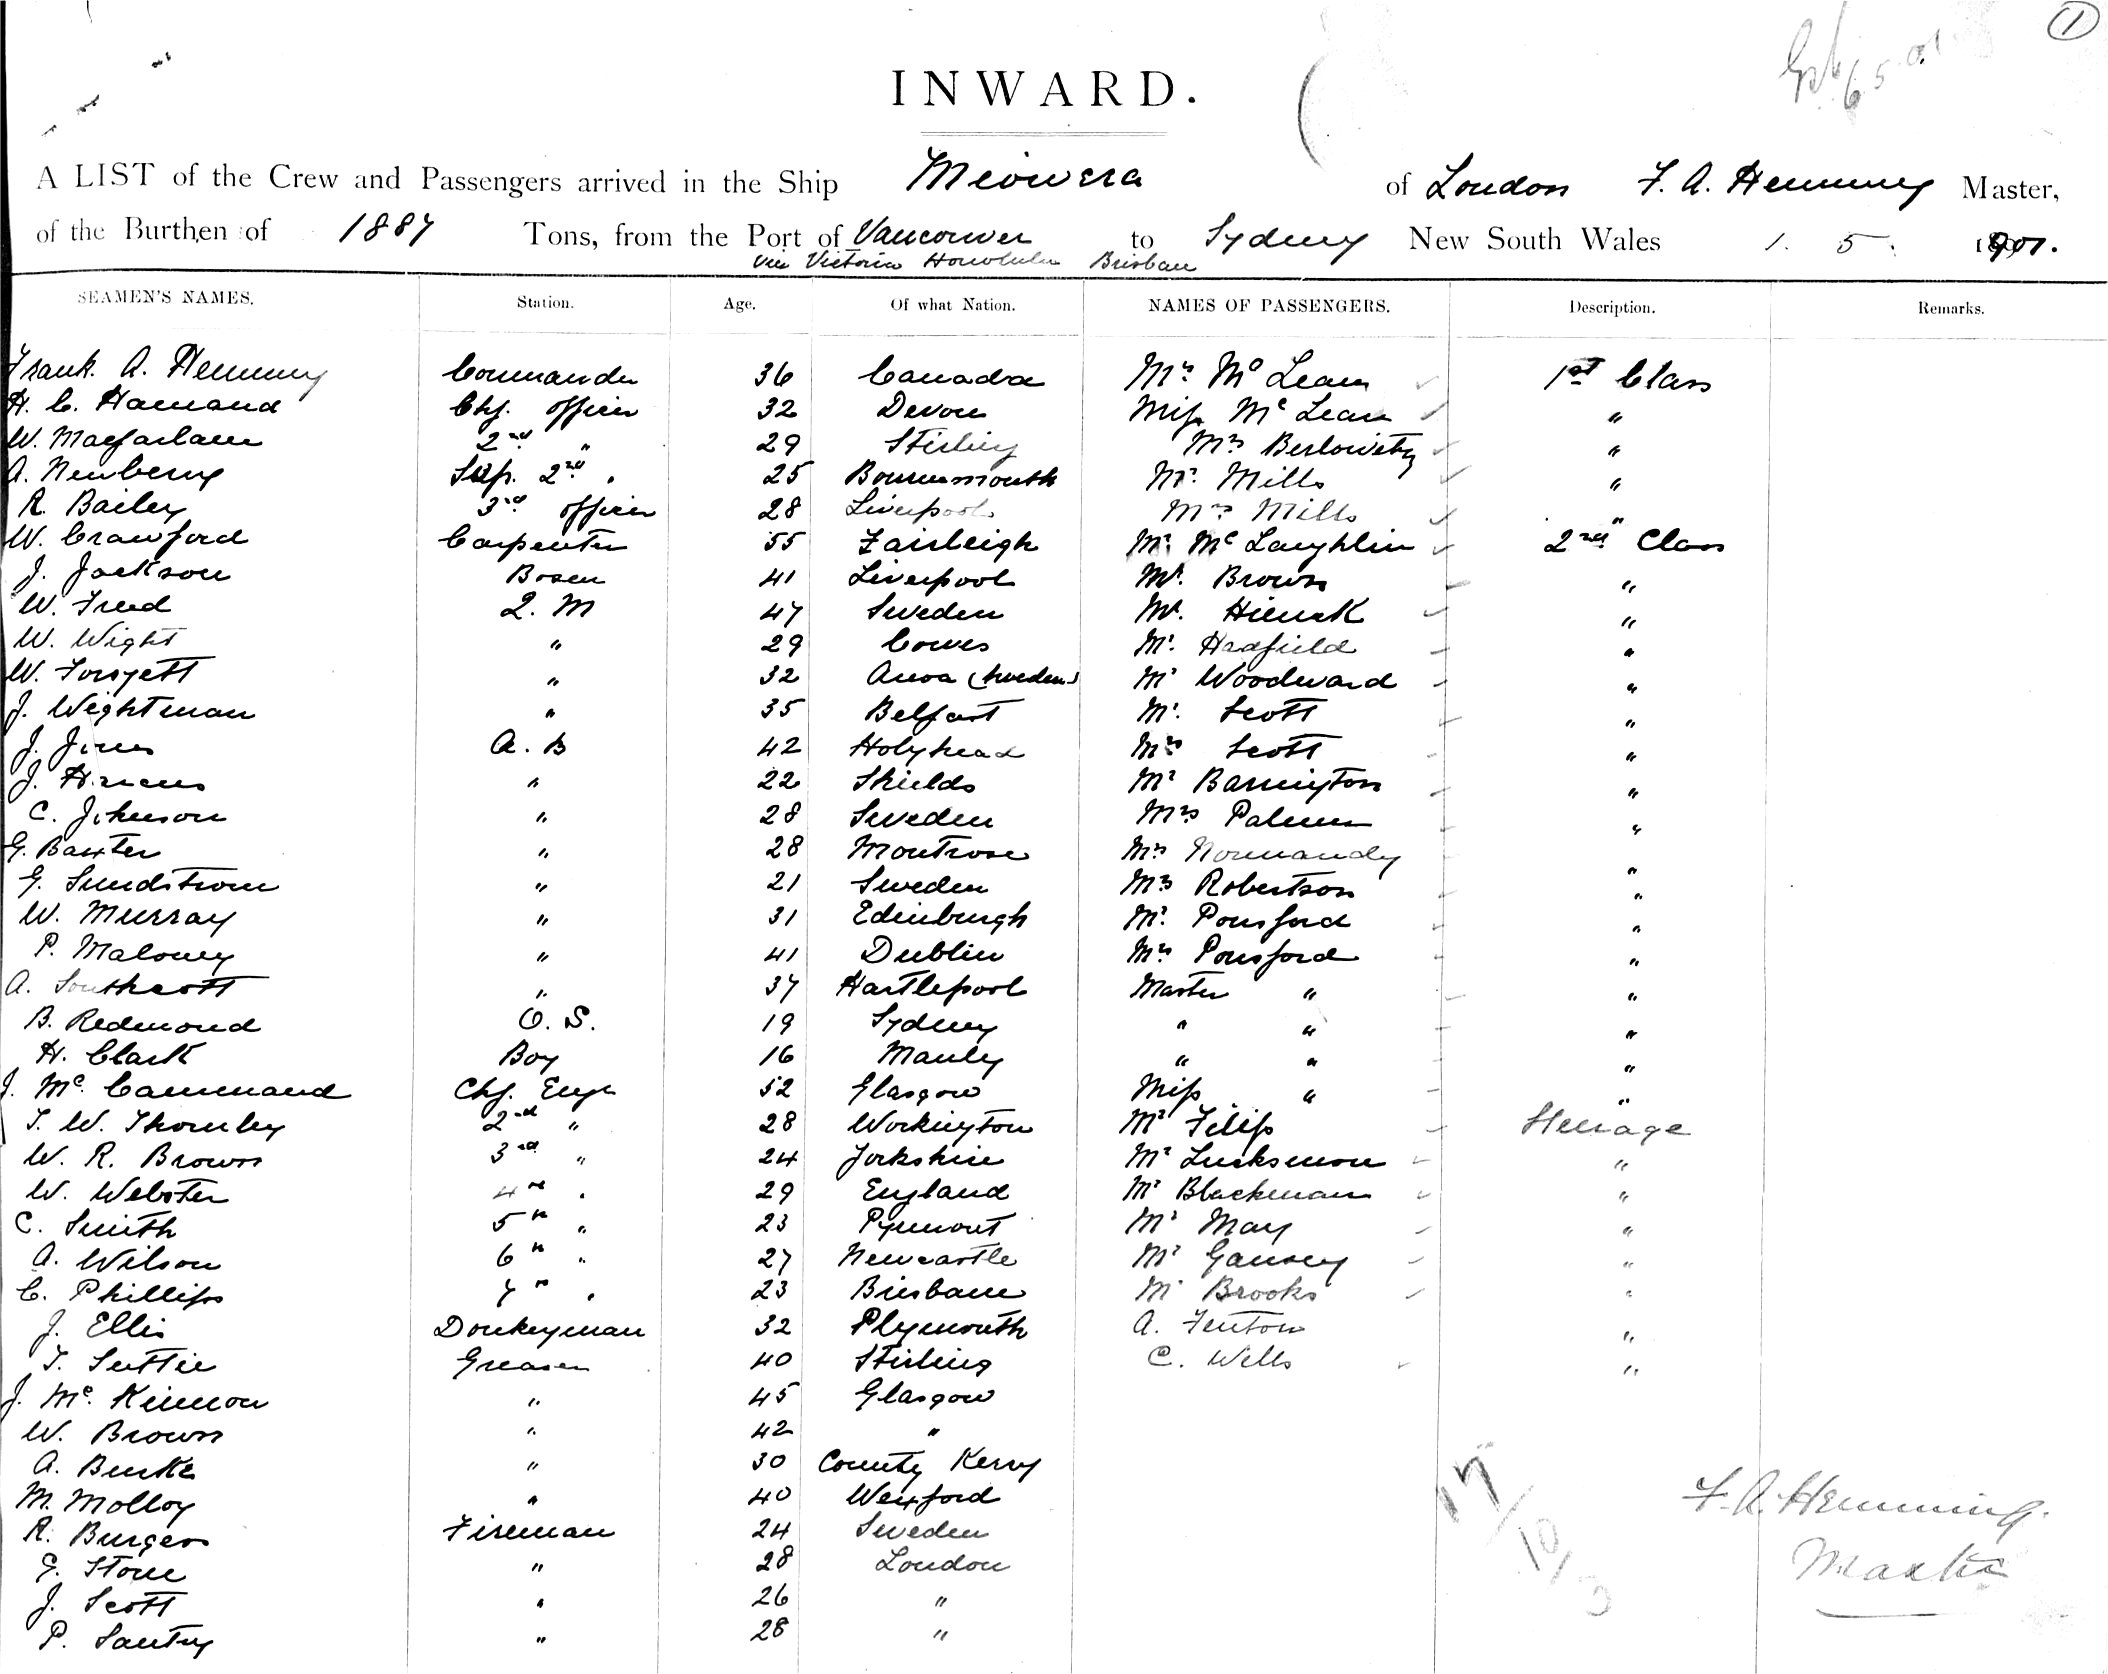 1
INWARD.
A LIST of the Crew and Passengers arrived in the Ship Miowera of London F. A. Hemming Master,
of the Burthen of 1887 Tons, from the Port of Vancouver to Sydney New South Wales 1. 5. 1901.
via Victoria Honolulu Brisbane
SEAMEN'S NAMES. Station. Age. Of what Nation. NAMES OF PASSENGERS. Description. Remarks.
Frank. A. Hemming Commander 36 Canada Mrs McLean 1st Class
H. C. Hamand Chf. officer 32 Devon Miss McLean "
W. Macfarlane 2nd " 29 Stirling Mrs Berlowitz "
A. Newberry Sup. 2nd " 25 Bournemouth Mr. Mills "
R. Bailey 3rd officer 28 Liverpool Mrs Mills "
W. Crawford Carpenter 55 Fairleigh Mr. McLaughlin 2nd Class
J. Jackson Bosen 41 Liverpool Mr. Brown "
W. Freed Q. M 47 Sweden Mr. "
W. Wight " 29 Cowes Mr. Hadfield "
W. Forsyett " 32 (Sweden) Mr Woodward "
J. Wightman " 35 Belfast Mr. Scott "
J. Jones A. B 42 Holyhead Mrs Scott "
J. " 22 Shields Mr Barrington "
C. Johnson " 28 Sweden Mrs Palmer "
G. Baxter " 28 Montrose Mrs Normandy "
G. Sundstrom " 21 Sweden Mrs Robertson "
W. Murray " 31 Edinburgh Mr. Ponsford "
P. Maloney " 41 Dublin Mrs Ponsford "
A. Southcott " 37 Hartlepool Master " "
B. Redmond O. S. 19 Sydney " " "
H. Clark Boy 16 Manly " " "
J. McCammand Chf. Engr 52 Glasgow Miss " "
T. W. Thornley 2nd " 28 Workington Mr Filip Steerage
W. R. Brown 3rd " 24 Yorkshire Mr Lucksmon "
W. Webster 4th " 29 England Mr Blackman "
C. Smith 5th " 23 Pyrmont Mr May "
A. Wilson 6th " 27 Newcastle Mr Gansey "
C. Phillips 7th " 23 Brisbane Mr Brooks "
J. Ellis Donkeyman 32 Plymouth A. Fenton "
T. Suttie Greaser 40 Stirling C. Wells "
J. McKinnon " 45 Glasgow
W. Brown " 42 "
A. Burke " 30 County Kerry
M. Molloy " 40 Wexford
R. Burgess Fireman 24 Sweden
G. Stone " 28 London
J. Scott " 26 "
P. Santry " 28 "
17/10/3
F. A. Hemming.
Master